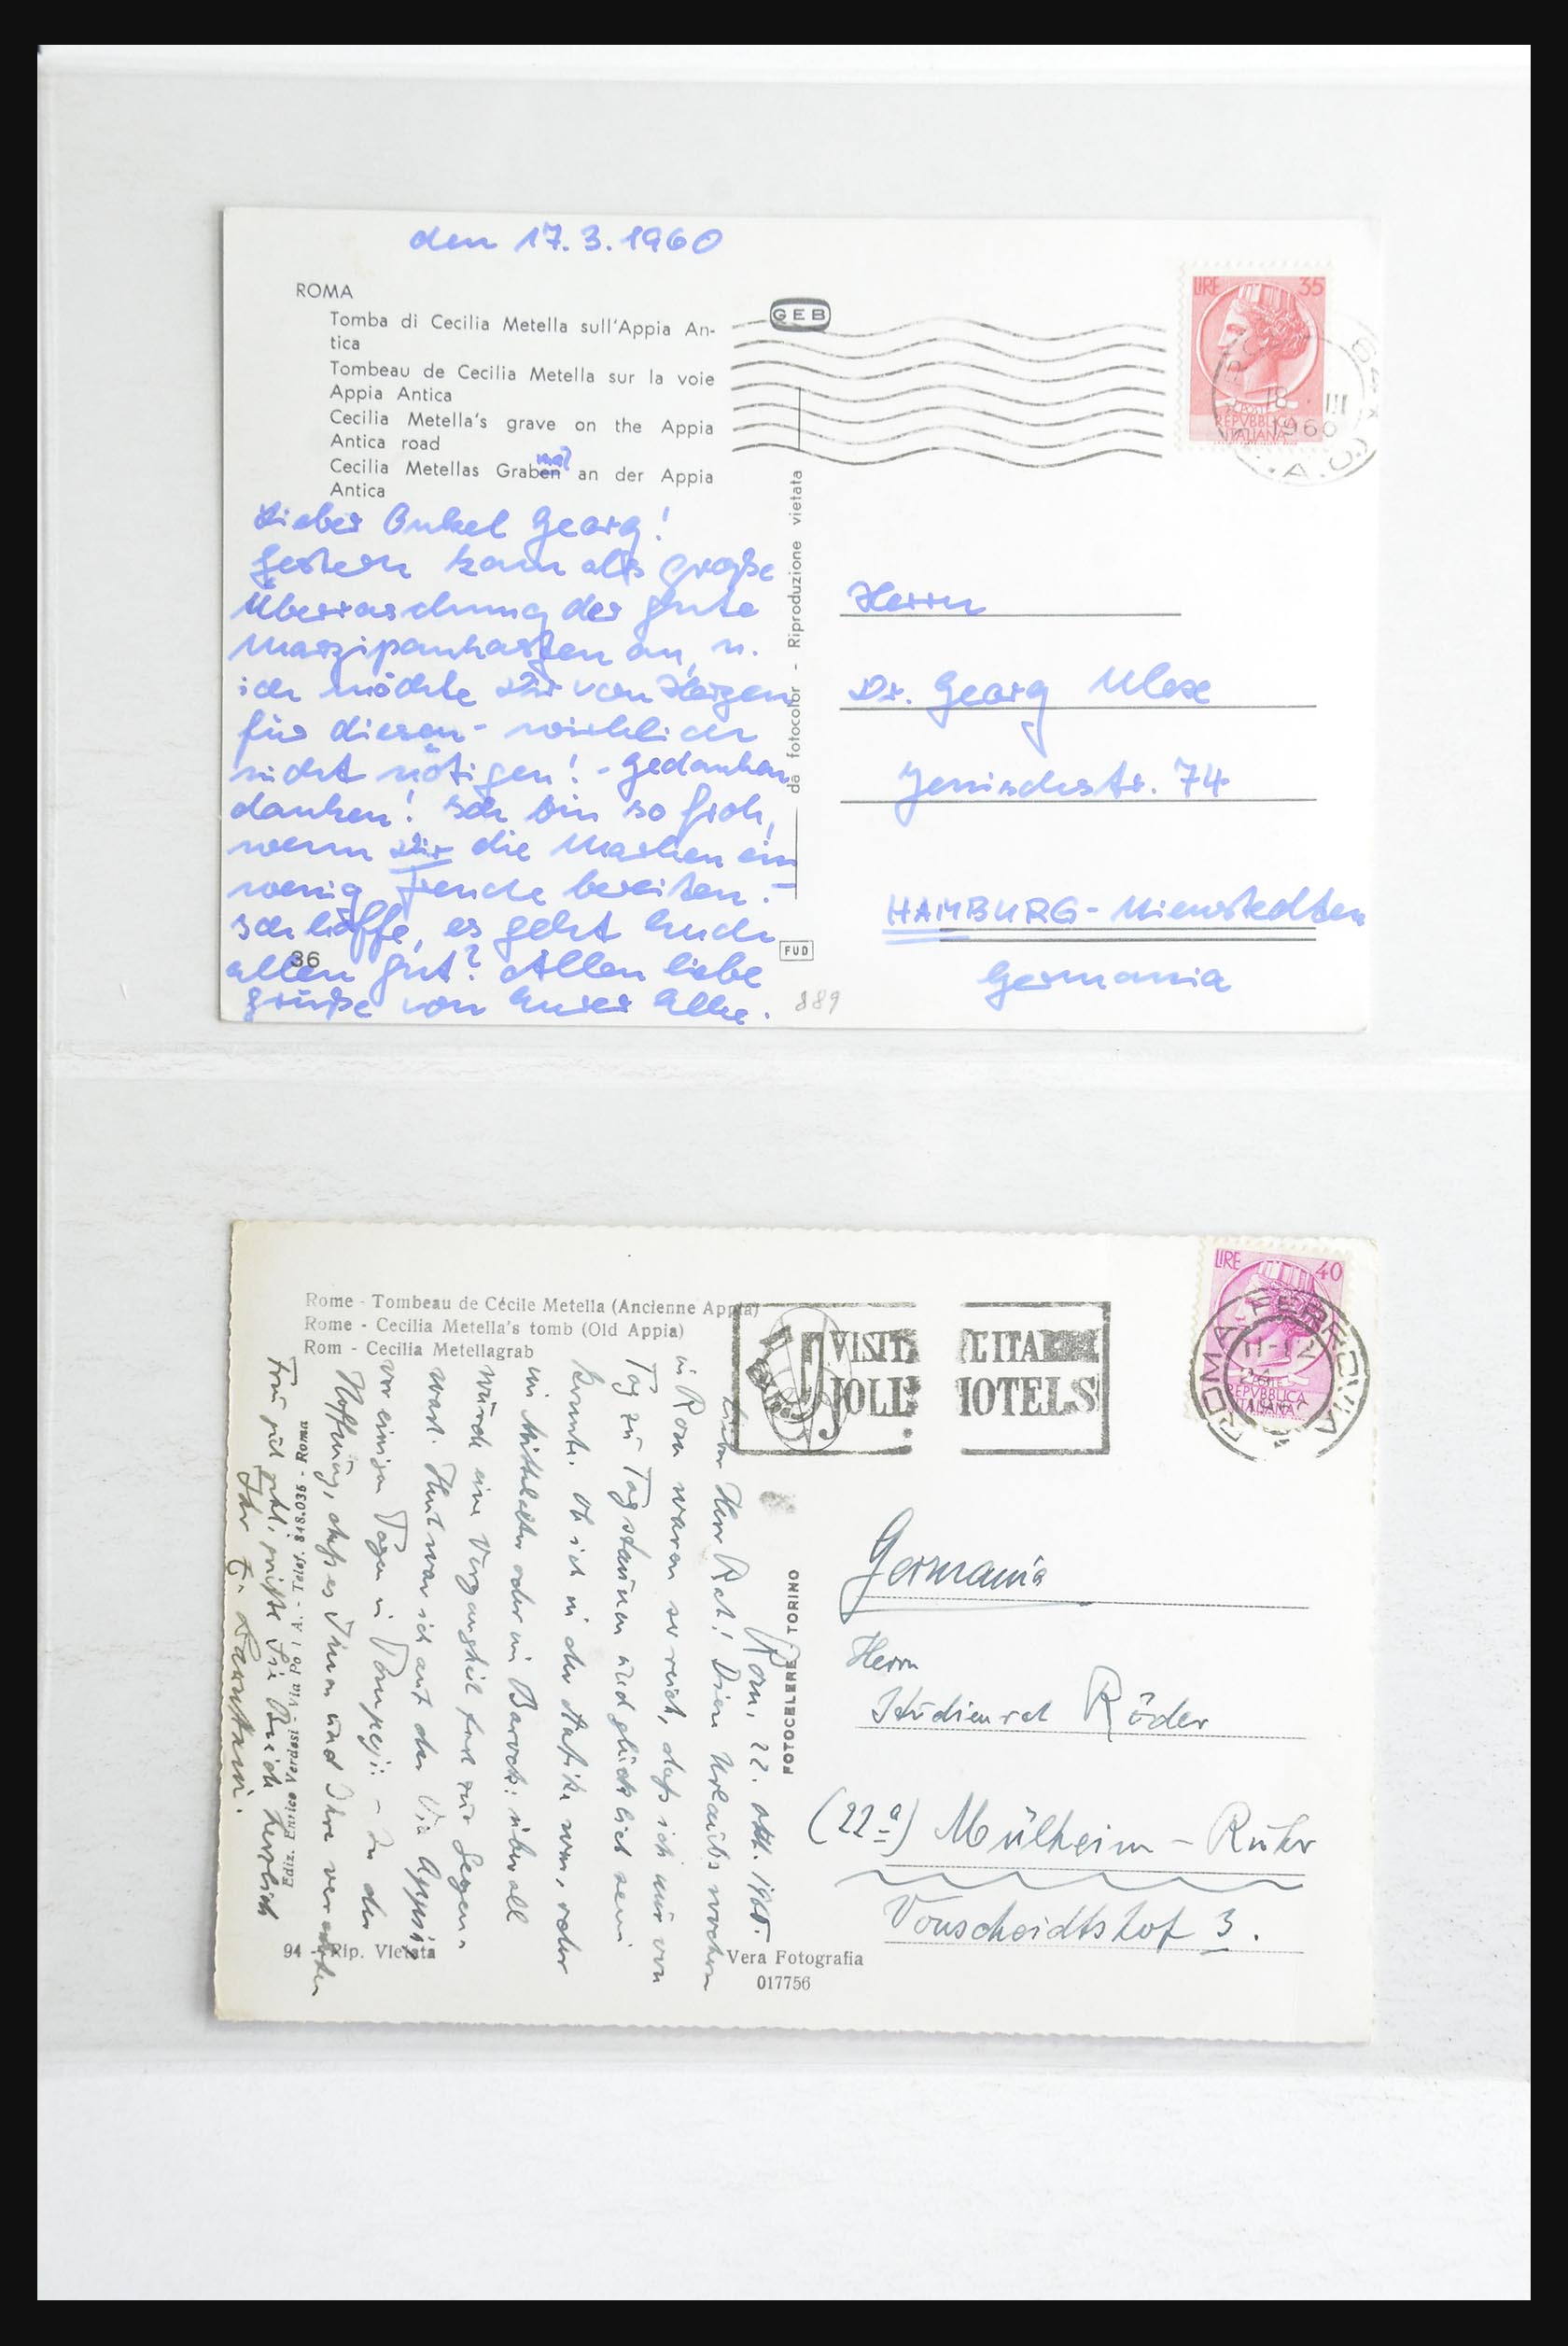 den 17.3.1960
ROMA
Tomba di Cecilia Metella sull'Appia An-
tica
Tombeau de Cecilia Metella sur la voie
Appia Antica
Cecilia Metella's grave on the Appia
Antica road
mal
Cecilia Metellas Graben an der Appia
Antica
Lieber Onkel Georg!
Gestern kam als große
Überraschung der gute
Marzipankasten an, u.
ich möchte Dir von Herzen
für diesen - wirklich
nicht nötigen! - Gedanken
danken! Ich bin so froh,
wenn Dir die Marken ein
wenig Freude bereiten. -
Ich hoffe, es geht Euch
allen gut? Allen liebe
Grüße von Eurer Elke.
36
GEB
da fotocolor - Riproduzione vietata
FUD
889
LIRE 35
POSTE
REPVBBLICA
ITALIANA
18 III
1960
Herrn
Dr. Georg
Jenischstr. 74
HAMBURG - Nienstedten
Germania
Rome - Tombeau de Cécile Metella (Ancienne Appia)
Rome - Cecilia Metella's tomb (Old Appia)
Rom - Cecilia Metellagrab
VISIT L'ITA
JOLL HOTELS
LIRE 40
POSTE
REPVBBLICA
ITALIANA
ROMA FERROVIA
11-12
Rom, 22. Okt. 1960.
Lieber Herr Rat! Diese Urlaubswochen
in Rom waren so reich, daß ich nur von
Tag zu Tag staunen und glücklich sein
konnte. Ob ich in der Antike war, oder
im Mittelalter oder im Barock: überall
wurde eine Vergangenheit zur Gegen-
wart. Heut war ich auf der Via Appia,
vor einigen Tagen in Pompeji: - In der
Hoffnung, daß es Ihnen und Ihrer verehrten
Frau gut geht, grüße Sie Beide herzlich
Ihr
Ediz. Enrico Verdesi - Via Po 1 A. - Telef. 848.035 - Roma
94 - Rip. Vietata
FOTOCELERE TORINO
Vera Fotografia
017756
Germania
Herrn
Studienrat Röder
(22a) Mülheim - Ruhr
Vonscheidtshof 3.